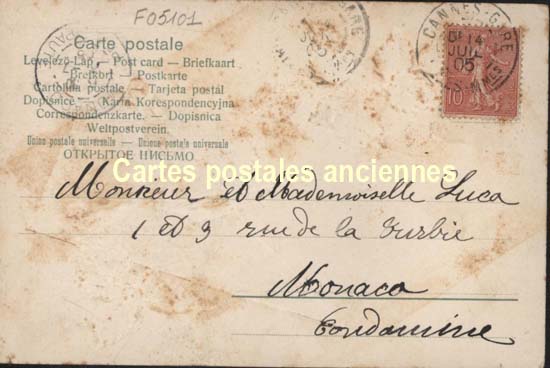 F05101
Carte postale
Levelező-Lap — Post card — Briefkaart
Brefkort — Postkarte
Cartolina postale — Tarjeta postál
Dopisnice — Karta Korespondencyjna
Correspondenzkarte. — Dopisnica
Weltpostverein.
Union postale universelle — Unione postale universale
ОТКРЫТОЕ ПИСЬМО
CANNES-GARE
14
JUIL
05
10
Cartes postales anciennes
Monsieur et Mademoiselle Luca
1 et 3 rue de la Turbie
Monaco
Condamine